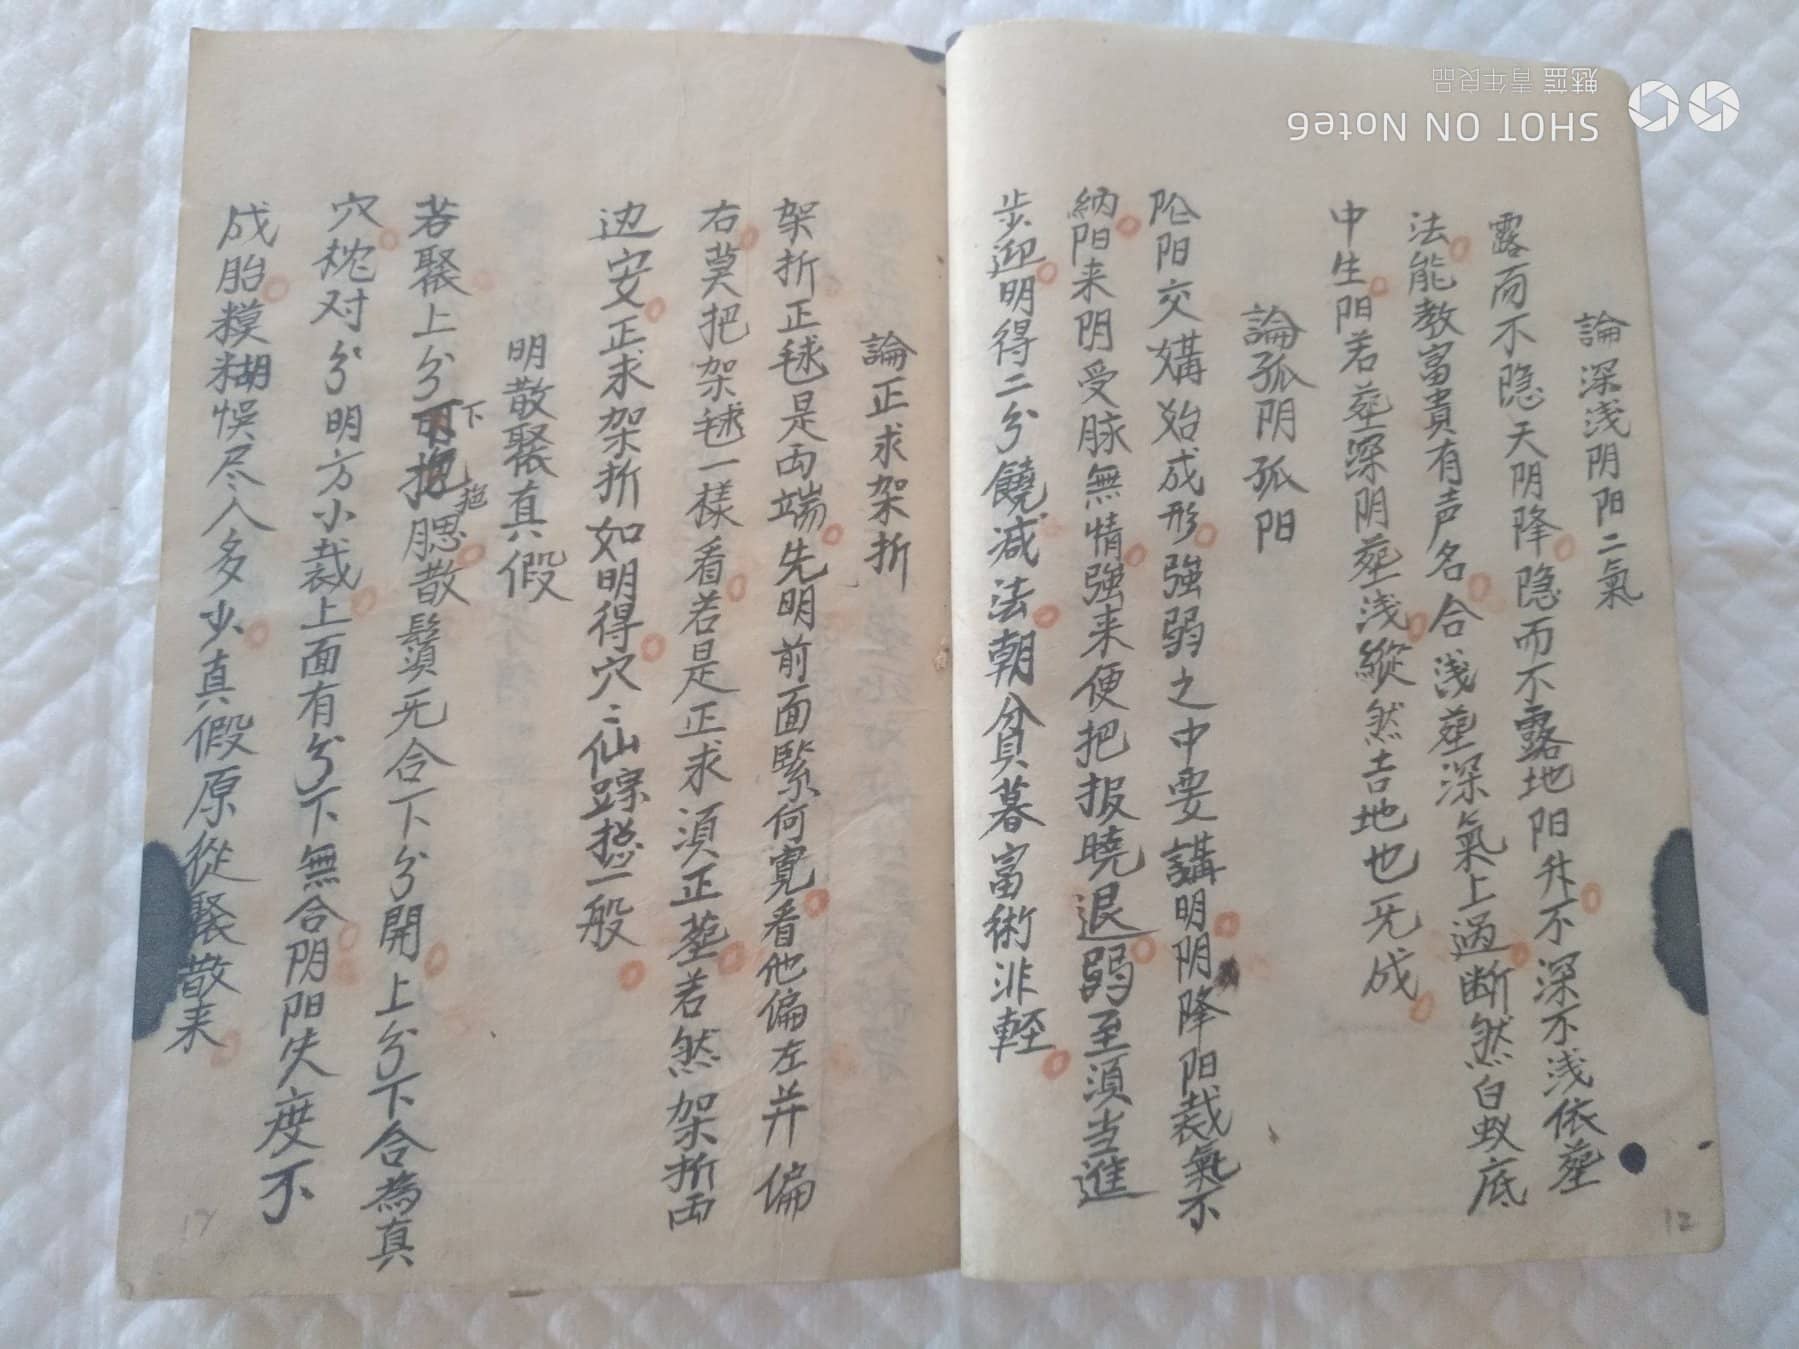 論深浅阴阳二氣
露而不隐天阴降隐而不露地阳升不深不浅依塟
法能教富貴有声名合浅塟深氣上過断然白蚁底
中生阳若塟深阴塟浅縱然吉地也旡成
論孤阴孤阳
阴阳交媾始成形強弱之中要講明阴降阳裁氣不
納阳来阴受脉無情強来便把报曉退弱至須当進
步迎明得二分饒减法朝貧暮富術非輕
論正求架折
架折正毬是両端先明前面緊何寛看他偏左并偏
右莫把架毬一樣看若是正求湏正塟若然架折両
边安正求架折如明得穴〻仙踪揔一般
明散聚真假
若聚上分下拖腮散鬚旡合下分開上分下合為真
穴枕对分明方小裁上面有分下無合阴阳失度不
成胎糢糊悞尽人多少真假原從聚散来
12
17
SHOT ON Note6
魅蓝 青年良品